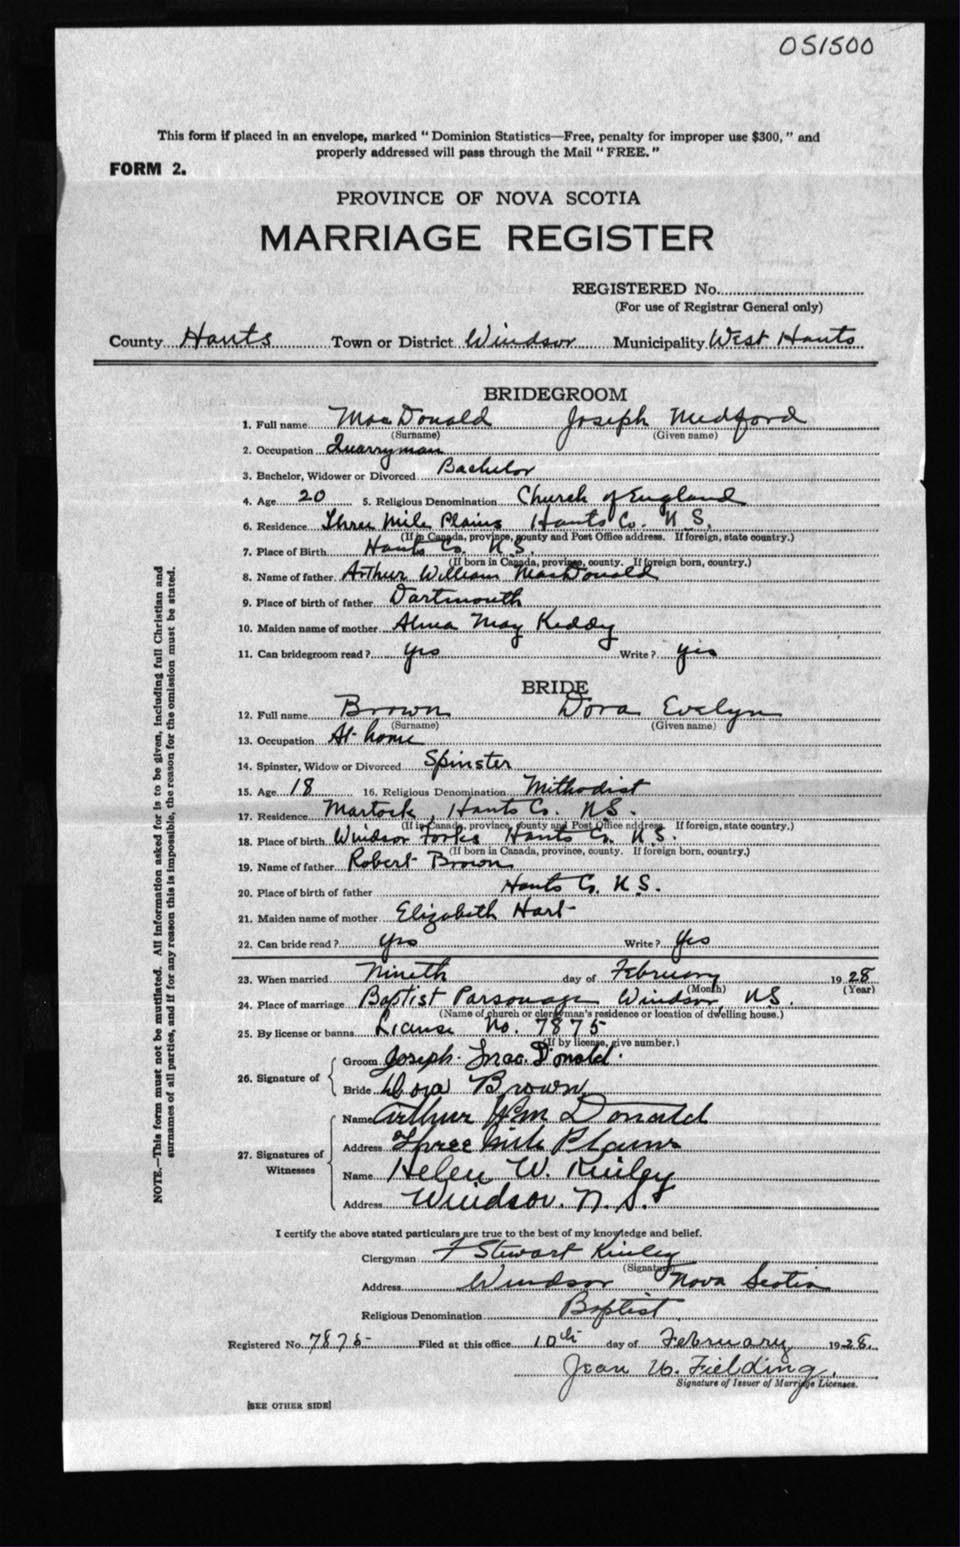 051500
This form if placed in an envelope, marked "Dominion Statistics—Free, penalty for improper use $300," and
properly addressed will pass through the Mail "FREE."
FORM 2.
PROVINCE OF NOVA SCOTIA
MARRIAGE REGISTER
REGISTERED No.
(For use of Registrar General only)
County Hants Town or District Windsor Municipality West Hants
BRIDEGROOM
1. Full name MacDonald Joseph Medford
(Surname) (Given name)
2. Occupation Quarryman
3. Bachelor, Widower or Divorced Bachelor
4. Age 20 5. Religious Denomination Church of England
6. Residence Three Mile Plains Hants Co. N.S.
(If in Canada, province, county and Post Office address. If foreign, state country.)
7. Place of Birth Hants Co. N.S.
(If born in Canada, province, county. If foreign born, country.)
8. Name of father Arthur William MacDonald
9. Place of birth of father Dartmouth
10. Maiden name of mother Alma May Keddy
11. Can bridegroom read? yes Write? yes
BRIDE
12. Full name Brown Dora Evelyn
(Surname) (Given name)
13. Occupation At home
14. Spinster, Widow or Divorced Spinster
15. Age 18 16. Religious Denomination Methodist
17. Residence Martock, Hants Co. N.S.
(If in Canada, province, county and Post Office address. If foreign, state country.)
18. Place of birth Windsor Forks Hants Co. N.S.
(If born in Canada, province, county. If foreign born, country.)
19. Name of father Robert Brown
20. Place of birth of father Hants Co. N.S.
21. Maiden name of mother Elizabeth Hart
22. Can bride read? yes Write? yes
23. When married Nineth day of February 1928
(Month) (Year)
24. Place of marriage Baptist Parsonage Windsor, N.S.
(Name of church or clergyman's residence or location of dwelling house.)
25. By license or banns License No. 7875
(If by license, give number.)
26. Signature of
Groom Joseph MacDonald.
Bride Dora Brown
27. Signatures of Witnesses
Name Arthur Wm Donald
Address Three Mile Plains
Name Helen W. Kinley
Address Windsor. N.S.
I certify the above stated particulars are true to the best of my knowledge and belief.
Clergyman F Stewart Kinley
(Signature)
Address Windsor Nova Scotia
Religious Denomination Baptist
Registered No. 7875 Filed at this office 10th day of February 1928.
Jean W. Fielding.
Signature of Issuer of Marriage Licenses.
[SEE OTHER SIDE]
NOTE.—This form must not be mutilated. All information asked for is to be given, including full Christian and
surnames of all parties, and if for any reason this is impossible, the reason for the omission must be stated.